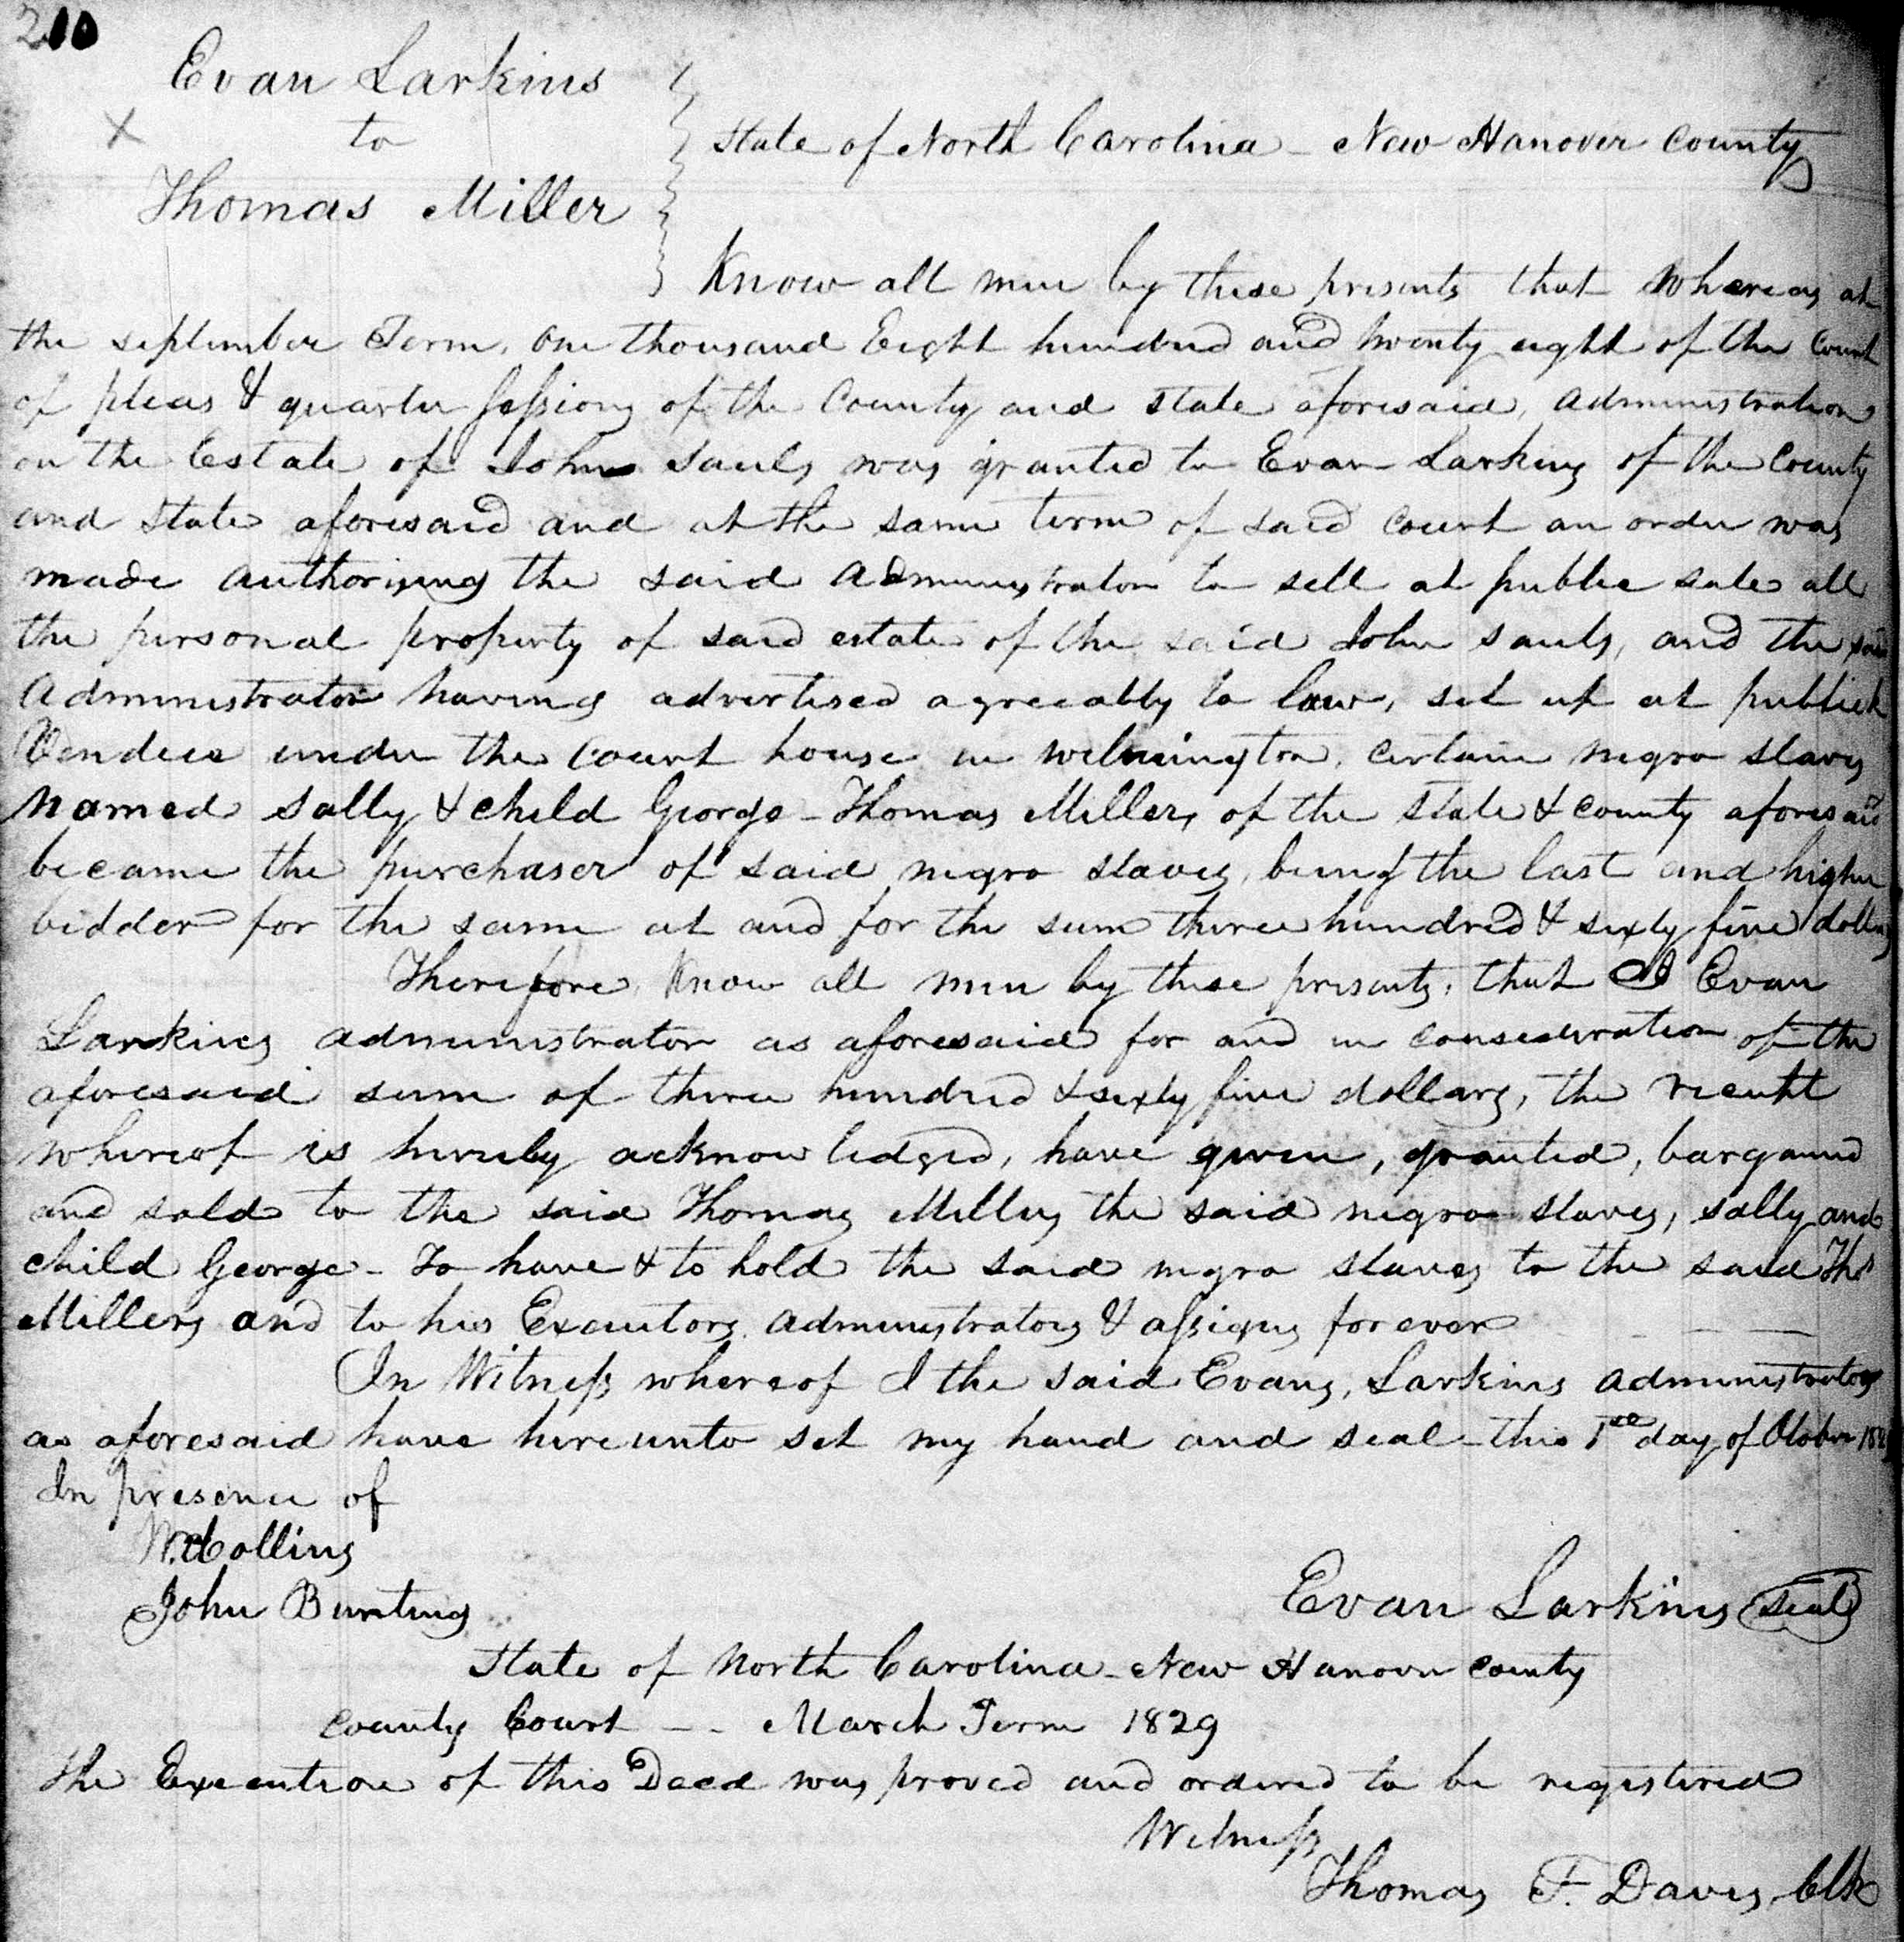 210
Evan Larkins
to
Thomas Miller
State of North Carolina - New Hanover County
Know all men by these presents that Whereas at
the september Term, One thousand Eight hundred and twenty eight of the Court
of pleas & quarter Sessions of the County and State aforesaid, administration
on the Estate of John Sauls was granted to Evan Larkins of the County
and State aforesaid and at the same term of said Court an order was
made authorising the said Administrator to sell at public sale all
the personal property of said estate of the said John Sauls, and the said
Administrator having advertised agreeably to law, set up at publick
Vendue under the Court house in Wilmington, certain negro slaves
Named Sally & child George - Thomas Millers of the State & County aforesaid
became the purchaser of said negro slaves, being the last and higher
bidder for the same at and for the sum three hundred & sixty five dollars
Therefore, Know all men by these presents, that I Evan
Larkins administrator as aforesaid for and in consideration of the
aforesaid sum of three hundred & sixty five dollars, the receipt
whereof is hereby acknowledged, have given, granted, bargained
and sold to the said Thomas Millers the said negro slaves, Sally and
child George - To have & to hold the said negro slaves to the said Thos
Millers and to his Executors administrators & assigns forever
In Witness whereof I the said Evans, Larkins administrator
as aforesaid have hereunto set my hand and seal - this 1st day of October
In presence of
John Bunting
Evan Larkins Seal
State of North Carolina - New Hanover County
County Court - - March Term 1829
The Execution of this Deed was proved and ordered to be registered
Witness
Thomas F. Davis Clk